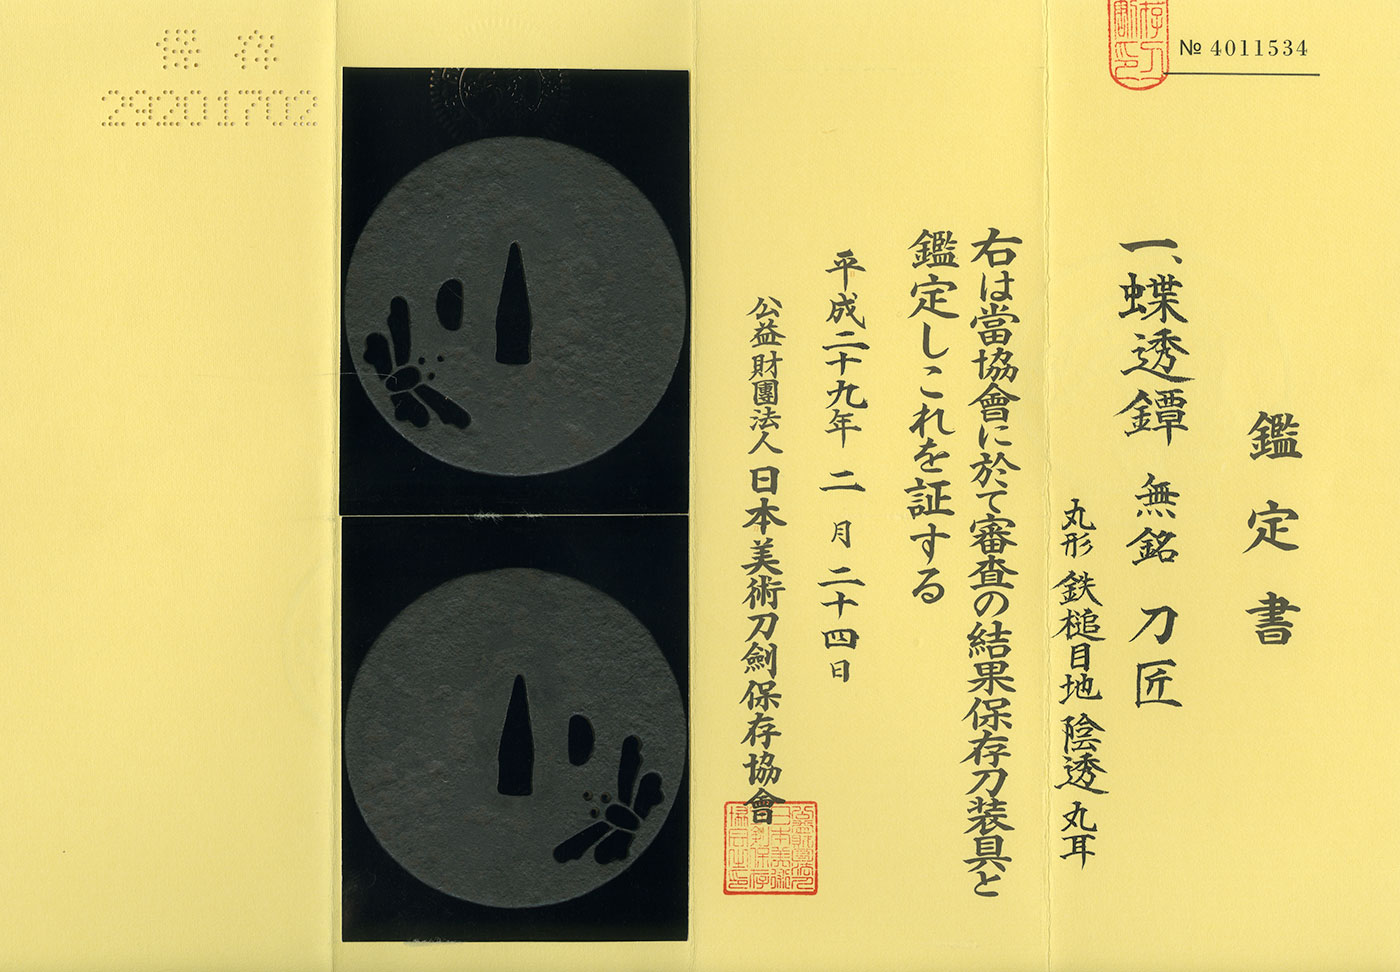 № 4011534
鑑定書
一、蝶透鐔 無銘 刀匠
丸形 鉄槌目地 陰透 丸耳
右は當協會に於て審査の結果保存刀装具と
鑑定しこれを証する
平成二十九年 二月 二十四日
公益財團法人 日本美術刀劍保存協會
保存
29201702